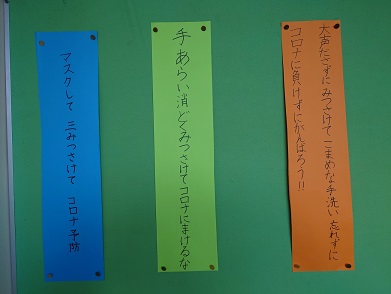 大声ださずにみつさけてこまめな手洗い忘れずに
コロナに負けずにがんばろう!!
手あらい消どくみつさけてコロナにまけるな
マスクして 三みつさけて コロナ予防